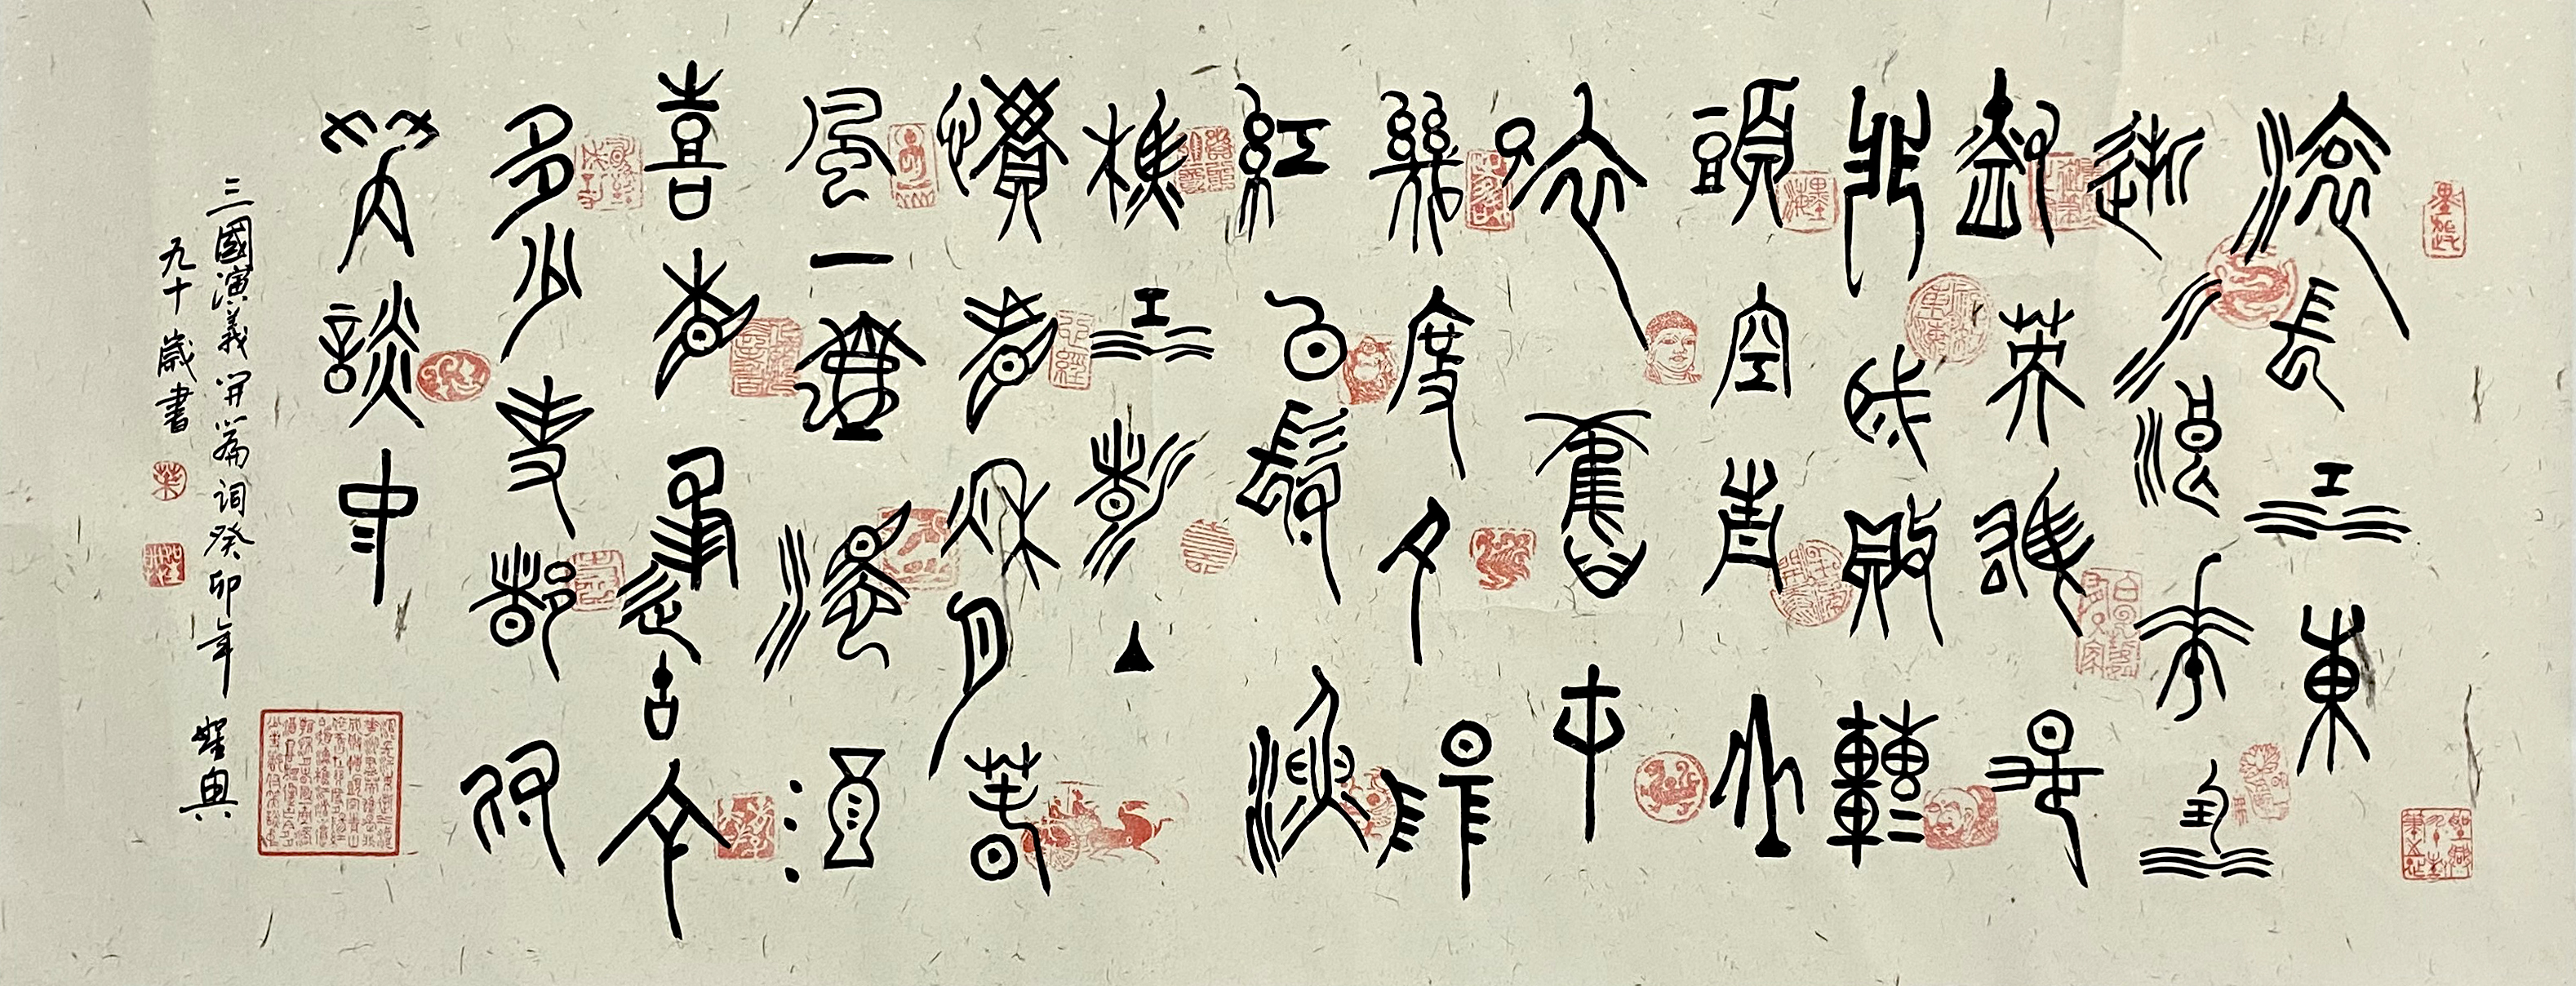 滾長江東
逝水浪花淘
盡英雄是
非成敗轉
頭空青山
依舊在
幾度夕陽
紅白髮漁
樵江渚上
慣看秋月春
風一壺濁酒
喜相逢古今
多少事都付
笑談中
三國演義開篇詞癸卯年
九十歲書